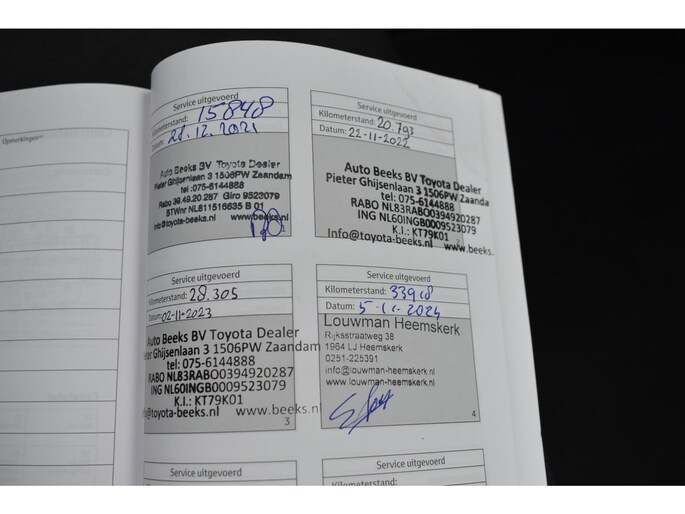 Opmerkingen
Service uitgevoerd
Kilometerstand: 15848
Datum: 21.12.2021
Auto Beeks BV Toyota Dealer
Pieter Ghijsenlaan 3 1506PW Zaandam
tel:075-6144888
Rabo 39.49.20.287 Giro 9523079
BTWnr NL811516635 B 01
info@toyota-beeks.nl www.beeks.nl
1
Service uitgevoerd
Kilometerstand: 20.793
Datum: 22-11-2022
Auto Beeks BV Toyota Dealer
Pieter Ghijsenlaan 3 1506PW Zaanda
tel: 075-6144888
RABO NL83RABO0394920287
ING NL60INGB0009523079
K.I.: KT79K01
Info@toyota-beeks.nl www.beeks.
2
Service uitgevoerd
Kilometerstand: 28.305
Datum: 02-11-2023
Auto Beeks BV Toyota Dealer
Pieter Ghijsenlaan 3 1506PW Zaandam
tel: 075-6144888
RABO NL83RABO0394920287
ING NL60INGB0009523079
K.I.: KT79K01
@toyota-beeks.nl www.beeks.nl
3
Service uitgevoerd
Kilometerstand: 33918
Datum: 5-11-2024
Louwman Heemskerk
Rijksstraatweg 38
1964 LJ Heemskerk
0251-225391
info@louwman-heemskerk.nl
www.louwman-heemskerk.nl
4
Service uitgevoerd
Service uitgevoerd
Kilometerstand: